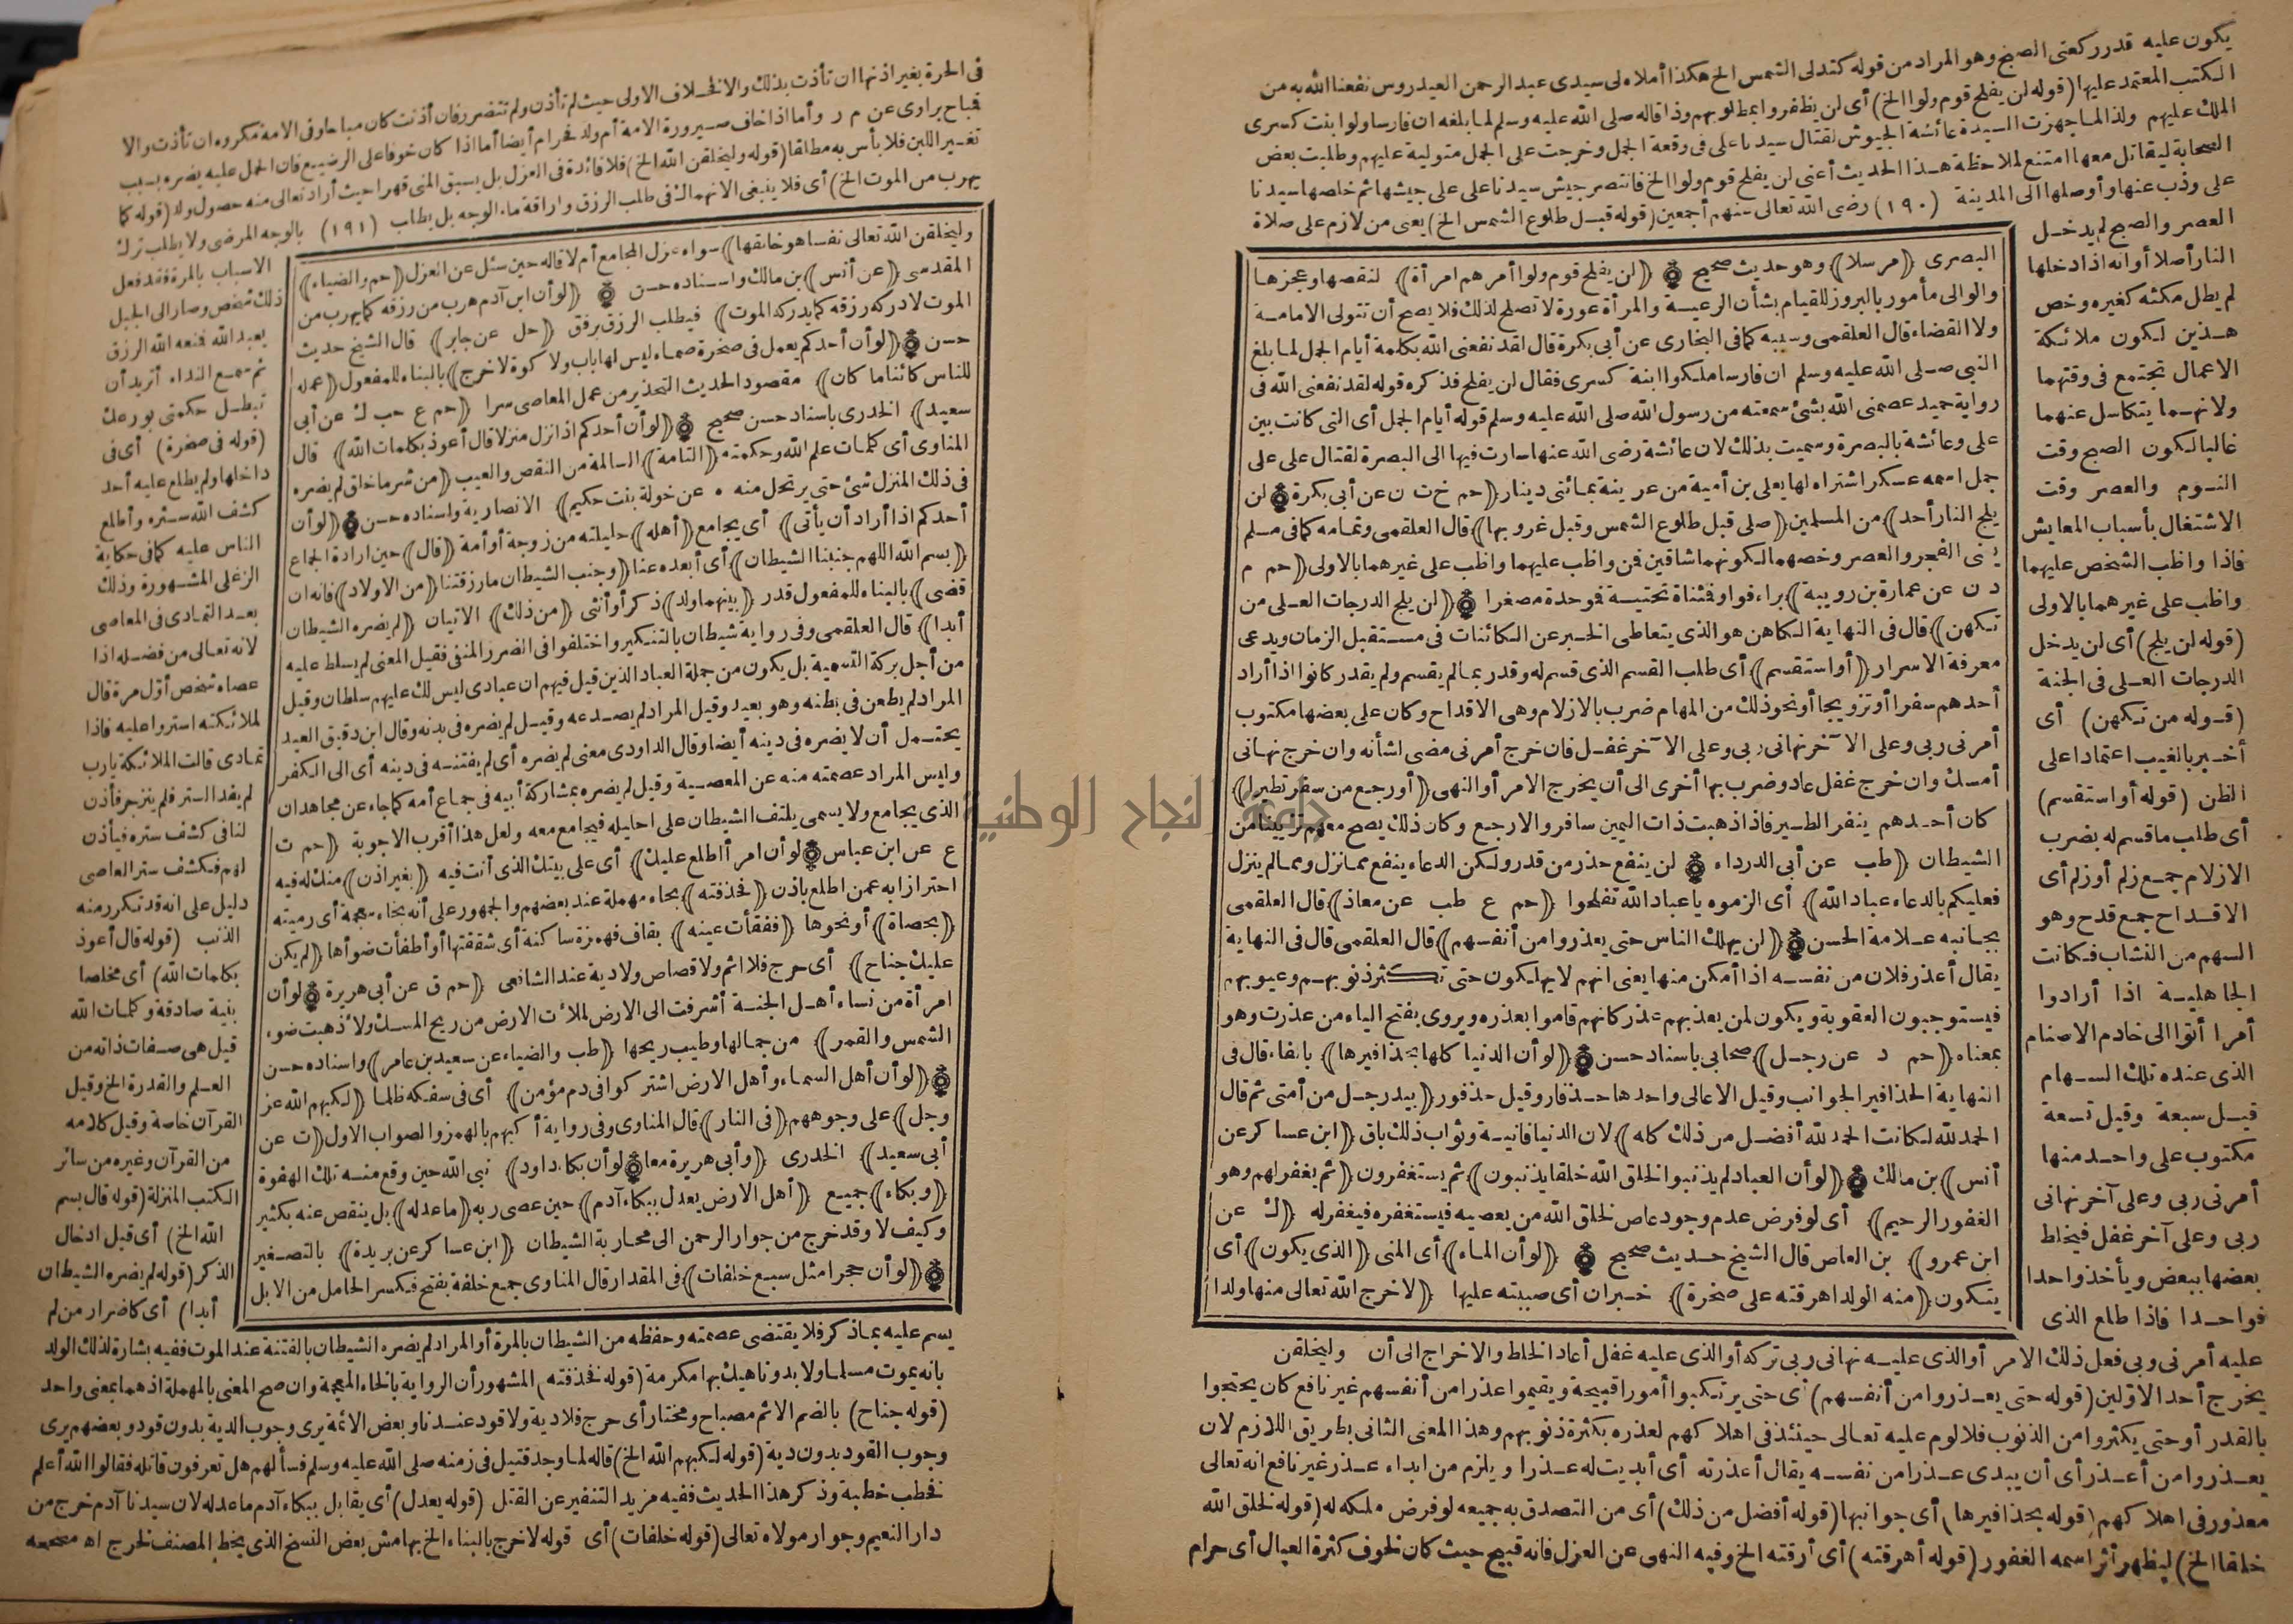 يكون عليه قدر ركعتى الصبح وهو المراد من قوله كتدلى الشمس الخ هكذا أملاه لى سيدى عبد الرحمن العيدروس نفعنا الله به من
الكتب المعتمد عليها (قوله لن يفلح قوم ولوا الخ) أى لن يظفروا بمطلوبهم وذا قاله صلى الله عليه وسلم لما بلغه ان فارسا ولوا بنت كسرى
الملك عليهم ولذا لما جهزت السيدة عائشة الجيوش لقتال سيدنا على فى وقعة الجمل وخرجت على الجمل متولية عليهم وطلبت بعض
الصحابة ليقاتل معها امتنع لملاحظة هذا الحديث أعنى لن يفلح قوم ولوا الخ فانتصر جيش سيدنا على على جيشها ثم خلصها سيدنا
على وذب عنها وأوصلها الى المدينة (١٩٠) رضى الله تعالى عنهم أجمعين (قوله قبل طلوع الشمس الخ) يعنى من لازم على صلاة
العصر والصبح لم يدخل
النار أصلا أو انه اذا دخلها
لم يطل مكثه كغيره وخص
هذين لكون ملائكة
الاعمال تجتمع فى وقتهما
ولانهما يتكاسل عنهما
غالبا لكون الصبح وقت
النوم والعصر وقت
الاشتغال بأسباب المعايش
فاذا واظب الشخص عليهما
واظب على غيرهما بالاولى
(قوله لن يلج) أى لن يدخل
الدرجات العلى فى الجنة
(قوله من تكهن) أى
أخبر بالغيب اعتمادا على
الظن (قوله أو استقسم)
أى طلب ما قسم له بضرب
الازلام جمع زلم أو زلم أى
الاقداح جمع قدح وهو
السهم من النشاب فكانت
الجاهلية اذا أرادوا
أمرا أتوا الى خادم الاصنام
الذى عنده تلك السهام
قيل سبعة وقيل تسعة
مكتوب على واحد منها
أمرنى ربى وعلى آخر نهانى
ربى وعلى آخر غفل فيخلط
بعضها ببعض ويأخذ واحدا
فواحدا فاذا طلع الذى
البصرى (مرسلا) وهو حديث صحيح (لن يفلح قوم ولوا أمرهم امرأة) لنقصها وعجزها
والوالى مأمور بالبروز للقيام بشأن الرعية والمرأة عورة لا تصلح لذلك فلا يصح أن تتولى الامامة
ولا القضاء قال العلقمى وسببه كما فى البخارى عن أبى بكرة قال لقد نفعنى الله بكلمة أيام الجمل لما بلغ
النبى صلى الله عليه وسلم ان فارسا ملكوا ابنة كسرى فقال لن يفلح فذكره قوله لقد نفعنى الله فى
رواية حميد عصمنى الله بشئ سمعته من رسول الله صلى الله عليه وسلم قوله أيام الجمل أى التى كانت بين
على وعائشة بالبصرة وسميت بذلك لان عائشة رضى الله عنها سارت فيها الى البصرة لقتال على على
جمل اسمه عسكر اشتراه لها يعلى بن أمية من عرينة بمائتى دينار (حم خ ت ن عن أبى بكرة) لن
يلج النار أحد) من المسلمين (صلى قبل طلوع الشمس وقبل غروبها) قال العلقمى وتمامه كما فى مسلم
يعنى الفجر والعصر وخصهما لكونهما شاقين فمن واظب عليهما واظب على غيرهما بالاولى (حم م
د ن عن عمارة بن رويبة) براء فواو فمثناة تحتية فموحدة مصغرا (لن يلج الدرجات العلى من
تكهن) قال فى النهاية الكاهن هو الذى يتعاطى الخبر عن الكائنات فى مستقبل الزمان ويدعى
معرفة الاسرار (أو استقسم) أى طلب القسم الذى قسم له وقدر بما لم يقسم ولم يقدر كانوا اذا أراد
أحدهم سفرا أو تزويجا أو نحو ذلك من المهام ضرب بالازلام وهى الاقداح وكان على بعضها مكتوب
أمرنى ربى وعلى الآخر نهانى ربى وعلى الآخر غفل فان خرج أمرنى مضى لشأنه وان خرج نهانى
أمسك وان خرج غفل عاد وضرب بها أخرى الى أن يخرج الامر أو النهى (أو رجع من سفر تطيرا)
كان أحدهم ينفر الطير فاذا ذهبت ذات اليمين سافر والا رجع وكان ذلك يصح معهم تزيينا من
الشيطان (طب عن أبى الدرداء) لن ينفع حذر من قدر ولكن الدعاء ينفع مما نزل ومما لم ينزل
فعليكم بالدعاء عباد الله) أى الزموه يا عباد الله تفلحوا (حم ع طب عن معاذ) قال العلقمى
بجانبه علامة الحسن (لن يهلك الناس حتى يعذروا من أنفسهم) قال العلقمى قال فى النهاية
يقال أعذر فلان من نفسه اذا أمكن منها يعنى انهم لا يهلكون حتى تكثر ذنوبهم وعيوبهم
فيستوجبون العقوبة ويكون لمن يعذبهم عذر كانهم قاموا بعذره ويروى بفتح الياء من عذرت وهو
بمعناه (حم د عن رجل) صحابى باسناد حسن (لو أن الدنيا كلها بحذافيرها) بالفاء قال فى
النهاية الحذافير الجوانب وقيل الاعالى واحدها حذفار وقيل حذفور (بيد رجل من أمتى ثم قال
الحمد لله لكانت الحمد لله أفضل من ذلك كله) لان الدنيا فانية وثواب ذلك باق (ابن عساكر عن
أنس) بن مالك (لو أن العباد لم يذنبوا لخلق الله خلقا يذنبون) ثم يستغفرون (ثم يغفر لهم وهو
الغفور الرحيم) أى لو فرض عدم وجود عاص لخلق الله من يعصيه فيستغفره فيغفر له (ك عن
ابن عمرو) بن العاص قال الشيخ حديث صحيح (لو أن الماء) أى المنى (الذى يكون) أى
يتكون (منه الولد اهرقته على صخرة) خبر ان أى صببته عليها (لاخرج الله تعالى منها ولدا
عليه أمرنى ربى فعل ذلك الامر أو الذى عليه نهانى ربى تركه أو الذى عليه غفل أعاد الخلط والاخراج الى أن وليخلقن
يخرج أحد الاولين (قوله حتى يعذروا من أنفسهم) أى حتى يرتكبوا أمورا قبيحة ويقيموا عذرا من أنفسهم غير نافع كان يحتجوا
بالقدر أو حتى يكثروا من الذنوب فلا لوم عليه تعالى حينئذ فى اهلاكهم لعذره بكثرة ذنوبهم وهذا المعنى الثانى بطريق اللازم لان
يعذروا من أعذر أى أن يبدى عذرا من نفسه يقال أعذرته أى أبديت له عذرا ويلزم من ابداء عذر غير نافع انه تعالى
معذور فى اهلاكهم (قوله بحذافيرها) أى جوانبها (قوله أفضل من ذلك) أى من التصدق به جميعه لو فرض ملكه له (قوله لخلق الله
خلقا الخ) ليظهر أثر اسمه الغفور (قوله أهرقته) أى أرقته الخ وفيه النهى عن العزل فانه قبيح حيث كان لخوف كثرة العيال أى حرام
فى الحرة بغير اذنها ان تأذت بذلك والا فخلاف الاولى حيث لم تأذن ولم تتضرر فان أذنت كان مباحا وفى الامة مكروه ان تأذت والا
فمباح براوى عن م ر وأما اذا خاف صيرورة الامة أم ولد فحرام أيضا أما اذا كان خوفا على الرضيع فان الحمل عليه يضره بسبب
تغير اللبن فلا بأس به مطلقا (قوله وليخلقن الله الخ) فلا فائدة فى العزل بل يسبق المنى قهرا حيث أراد تعالى منه حصول ولد (قوله كما
يهرب من الموت الخ) أى فلا ينبغى الانهماك فى طلب الرزق واراقة ماء الوجه بل يطلب (١٩١) بالوجه المرضى ولا يطلب ترك
الاسباب بالمرة فقد فعل
ذلك شخص وصار الى الجبل
يعبد الله فمنعه الله الرزق
ثم سمع النداء أتريد أن
تبطل حكمتى بورعك
(قوله فى صخرة) أى فى
داخلها ولم يطلع عليه أحد
كشف الله ستره وأطلع
الناس عليه كما فى حكاية
الزغلى المشهورة وذلك
بعد التمادى فى المعاصى
لانه تعالى من فضله اذا
عصاه شخص أول مرة قال
لملائكته استروا عليه فاذا
تمادى قالت الملائكة يارب
لم يفد الستر فلم ينزجر فأذن
لنا فى كشف ستره فيأذن
لهم فكشف ستر العاصى
دليل على انه قد تكرر منه
الذنب (قوله قال أعوذ
بكلمات الله) أى مخلصا
بنية صادقة وكلمات الله
قيل هى صفات ذاته من
العلم والقدرة الخ وقيل
القرآن خاصة وقيل كلامه
من القرآن وغيره من سائر
الكتب المنزلة (قوله قال بسم
الله الخ) أى قبل ادخال
الذكر (قوله لم يضره الشيطان
أبدا) أى كاضرار من لم
وليخلقن الله تعالى نفسا هو خالقها) سواء عزل المجامع أم لا قاله حين سئل عن العزل (حم والضياء)
المقدسى (عن أنس) بن مالك واسناده حسن (لو أن ابن آدم هرب من رزقه كما يهرب من
الموت لادركه رزقه كما يدركه الموت) فيطلب الرزق برفق (حل عن جابر) قال الشيخ حديث
حسن (لو أن أحدكم يعمل فى صخرة صماء ليس لها باب ولا كوة لاخرج) بالبناء للمفعول (عمله
للناس كائنا ما كان) مقصود الحديث التحذير من عمل المعاصى سرا (حم ع حب ك عن أبى
سعيد) الخدرى باسناد حسن صحيح (لو أن أحدكم اذا نزل منزلا قال أعوذ بكلمات الله) قال
المناوى أى كلمات علم الله وحكمته (التامة) السالمة من النقص والعيب (من شر ما خلق لم يضره
فى ذلك المنزل شئ حتى يرتحل منه ه عن خولة بنت حكيم) الانصارية واسناده حسن (لو أن
أحدكم اذا أراد أن يأتى) أى يجامع (أهله) حليلته من زوجة أو أمة (قال) حين ارادة الجماع
(بسم الله اللهم جنبنا الشيطان) أى أبعده عنا (وجنب الشيطان ما رزقتنا (من الاولاد) فانه ان
قضى) بالبناء للمفعول قدر (بينهما ولد) ذكر أو أنثى (من ذلك) الاتيان (لم يضره الشيطان
أبدا) قال العلقمى وفى رواية شيطان بالتنكير واختلفوا فى الضرر المنفى فقيل المعنى لم يسلط عليه
من أجل بركة التسمية بل يكون من جملة العباد الذين قيل فيهم ان عبادى ليس لك عليهم سلطان وقيل
المراد لم يطعن فى بطنه وهو بعيد وقيل المراد لم يصدعه وقيل لم يضره فى بدنه وقال ابن دقيق العيد
يحتمل أن لا يضره فى دينه أيضا وقال الداودى معنى لم يضره أى لم يفتنه فى دينه أى الى الكفر
وليس المراد عصمته منه عن المعصية وقيل لم يضره بمشاركة أبيه فى جماع أمه كما جاء عن مجاهد ان
الذى يجامع ولا يسمى يلتف الشيطان على احليله فيجامع معه ولعل هذا أقرب الاجوبة (حم ت
ع عن ابن عباس) لو أن امرأ اطلع عليك) أى على بيتك الذى أنت فيه (بغير اذن) منك له فيه
احترازا به عمن اطلع باذن (فحذفته) بحاء مهملة عند بعضهم والجمهور على أنه بخاء معجمة أى رميته
(بحصاة) أو نحوها (ففقأت عينه) بقاف فهمزة ساكنة أى شققتها أو أطفأت ضوأها (لم يكن
عليك جناح) أى حرج فلا اثم ولا قصاص ولا دية عند الشافعى (حم ق عن أبى هريرة) لو أن
امرأة من نساء أهل الجنة أشرفت الى الارض لملأت الارض من ريح المسك ولأذهبت ضوء
الشمس والقمر) من جمالها وطيب ريحها (طب والضياء عن سعيد بن عامر) واسناده حسن
(لو أن أهل السماء وأهل الارض اشتركوا فى دم مؤمن) أى فى سفكه ظلما (لكبهم الله عز
وجل) على وجوههم (فى النار) قال المناوى وفى رواية أكبهم بالهمز والصواب الاول (ت عن
أبى سعيد) الخدرى (وأبى هريرة معا) لو أن بكاء داود) نبى الله حين وقع منه تلك الهفوة
(وبكاء) جميع (أهل الارض يعدل ببكاء آدم) حين عصى ربه (ما عدله) بل ينقص عنه بكثير
وكيف لا وقد خرج من جوار الرحمن الى محاربة الشيطان (ابن عساكر عن بريدة) بالتصغير
(لو أن حجرا مثل سبع خلفات) فى المقدار قال المناوى جمع خلفة بفتح فكسر الحامل من الابل
يسم عليه بما ذكر فلا يقتضى عصمته وحفظه من الشيطان بالمرة أو المراد لم يضره الشيطان بالفتنة عند الموت ففيه بشارة لذلك الولد
بانه يموت مسلما ولا بد وناهيك بها مكرمة (قوله فخذفته) المشهور أن الرواية بالخاء المعجمة وان صح المعنى بالمهملة اذ هما بمعنى واحد
(قوله جناح) بالضم الاثم مصباح ومختار أى حرج فلا دية ولا قود عندنا وبعض الائمة يرى وجوب الدية بدون قود وبعضهم يرى
وجوب القود بدون دية (قوله لكبهم الله الخ) قاله لما وجد قتيل فى زمنه صلى الله عليه وسلم فسألهم هل تعرفون قاتله فقالوا الله أعلم
فخطب خطبة وذكر هذا الحديث ففيه مزيد التنفير عن القتل (قوله يعدل) أى يقابل ببكاء آدم ما عدله لان سيدنا آدم خرج من
دار النعيم وجوار مولاه تعالى (قوله خلفات) أى قوله لاخرج بالبناء الخ بهامش بعض النسخ الذى بخط المصنف لخرج اه مصححه
جامعة النجاح الوطنية